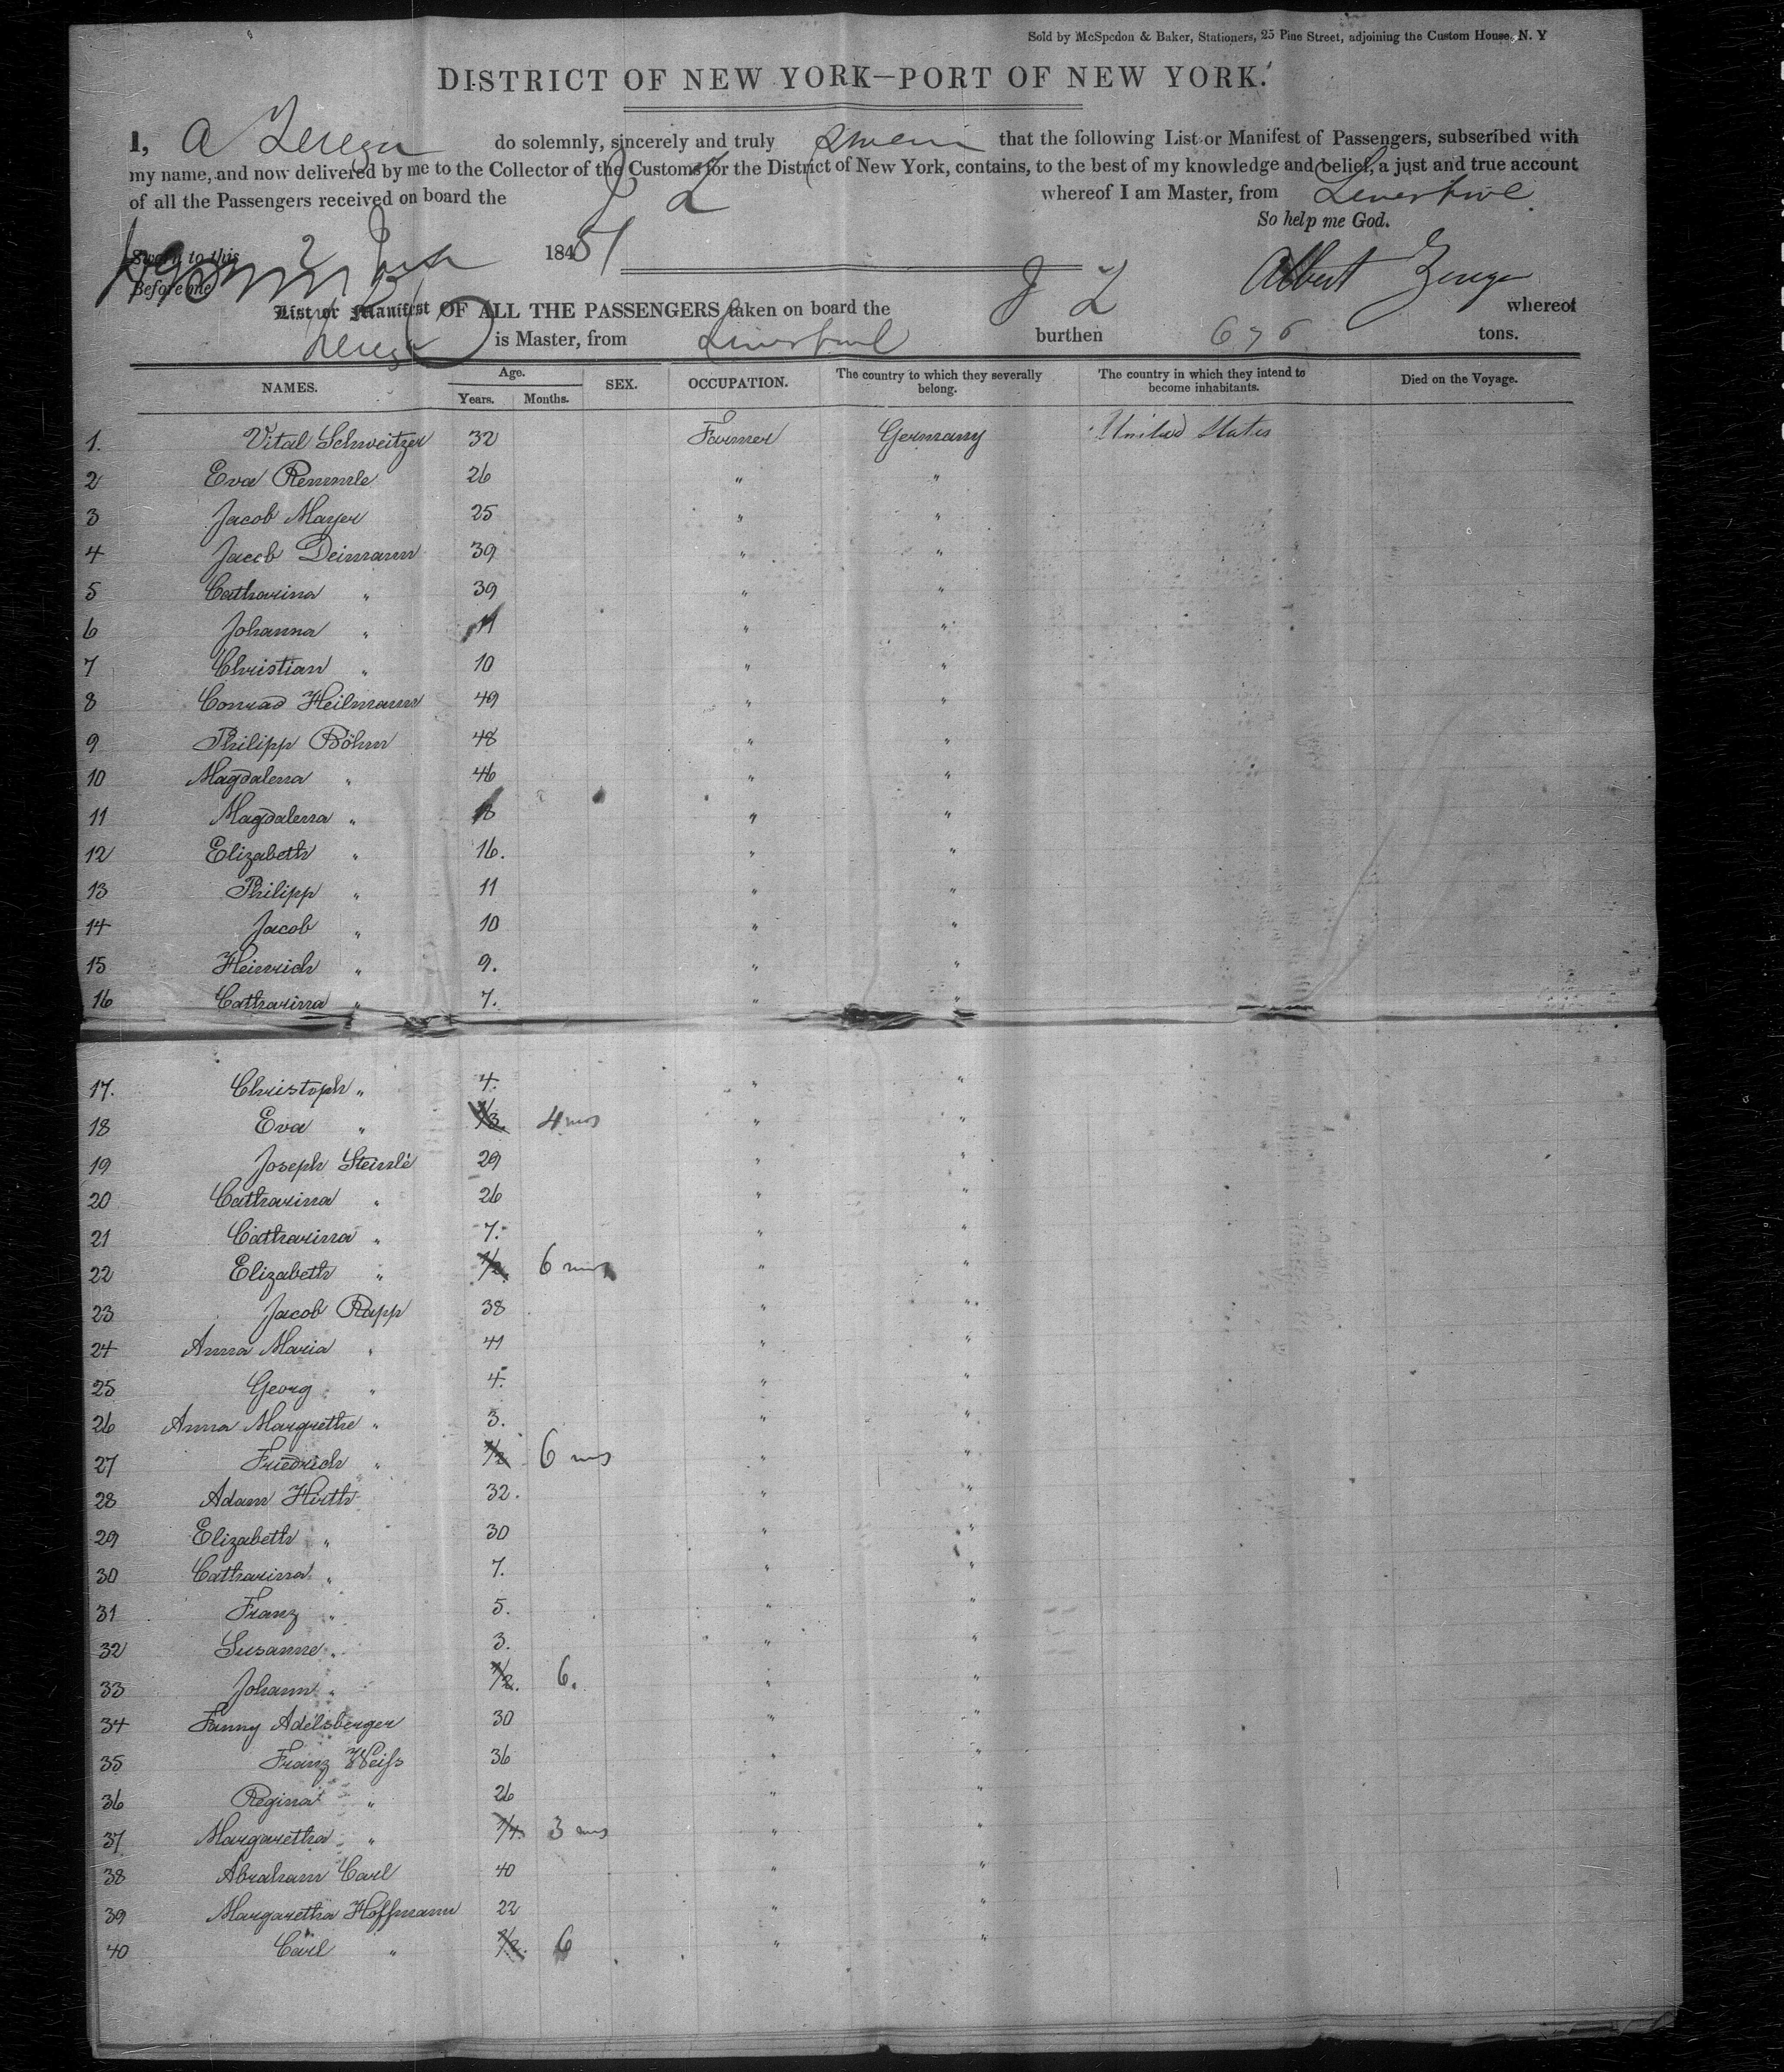 Sold by McSpedon & Baker, Stationers, 25 Pine Street, adjoining the Custom House, N. Y
DISTRICT OF NEW YORK—PORT OF NEW YORK.
I, A Zerega do solemnly, sincerely and truly swear that the following List or Manifest of Passengers, subscribed with
my name, and now delivered by me to the Collector of the Customs for the District of New York, contains, to the best of my knowledge and belief, a just and true account
of all the Passengers received on board the Z whereof I am Master, from Liverpool
So help me God.
Sworn to this 2 June 1851
Before me
Albert Zerega
List or Manifest OF ALL THE PASSENGERS taken on board the Z whereof
Zerega is Master, from Liverpool burthen 676 tons.
NAMES. Age. SEX. OCCUPATION. The country to which they severally belong. The country in which they intend to become inhabitants. Died on the Voyage.
Years. Months.
1. Vital Schweitzer 32 Farmer Germany United States
2 Eva Remmle 26 " "
3 Jacob Mayer 25 " "
4 Jacob Deimann 39 " "
5 Catharina " 39 " "
6 Johanna " 11 " "
7 Christian " 10 " "
8 Conrad Heilmann 49 " "
9 Philipp Böhm 48 " "
10 Magdalena " 46 " "
11 Magdalena " 18 " "
12 Elizabeth " 16. " "
13 Philipp " 11 " "
14 Jacob " 10 " "
15 Heinrich " 9. " "
16 Catharina " 7. " "
17. Christoph " 4. " "
18 Eva " 1/3. 4 mos " "
19 Joseph Steimle 29 " "
20 Catharina " 26 " "
21 Catharina " 7. " "
22 Elizabeth " 1/2. 6 mos " "
23 Jacob Rapp 38 " "
24 Anna Maria " 41 " "
25 Georg " 4. " "
26 Anna Margrethe " 3. " "
27 Friedrich " 1/2 6 mos " "
28 Adam Hirth 32. " "
29 Elizabeth " 30 " "
30 Catharina " 7. " "
31 Franz " 5. " "
32 Susanne " 3. " "
33 Johann " 1/2. 6. " "
34 Fanny Adelsberger 30 " "
35 Franz Weiß 36 " "
36 Regina " 26 " "
37 Margaretha " 1/4 3 mos " "
38 Abraham Carl 40 " "
39 Margaretha Hoffmann 22 " "
40 Carl " 1/2. 6 " "